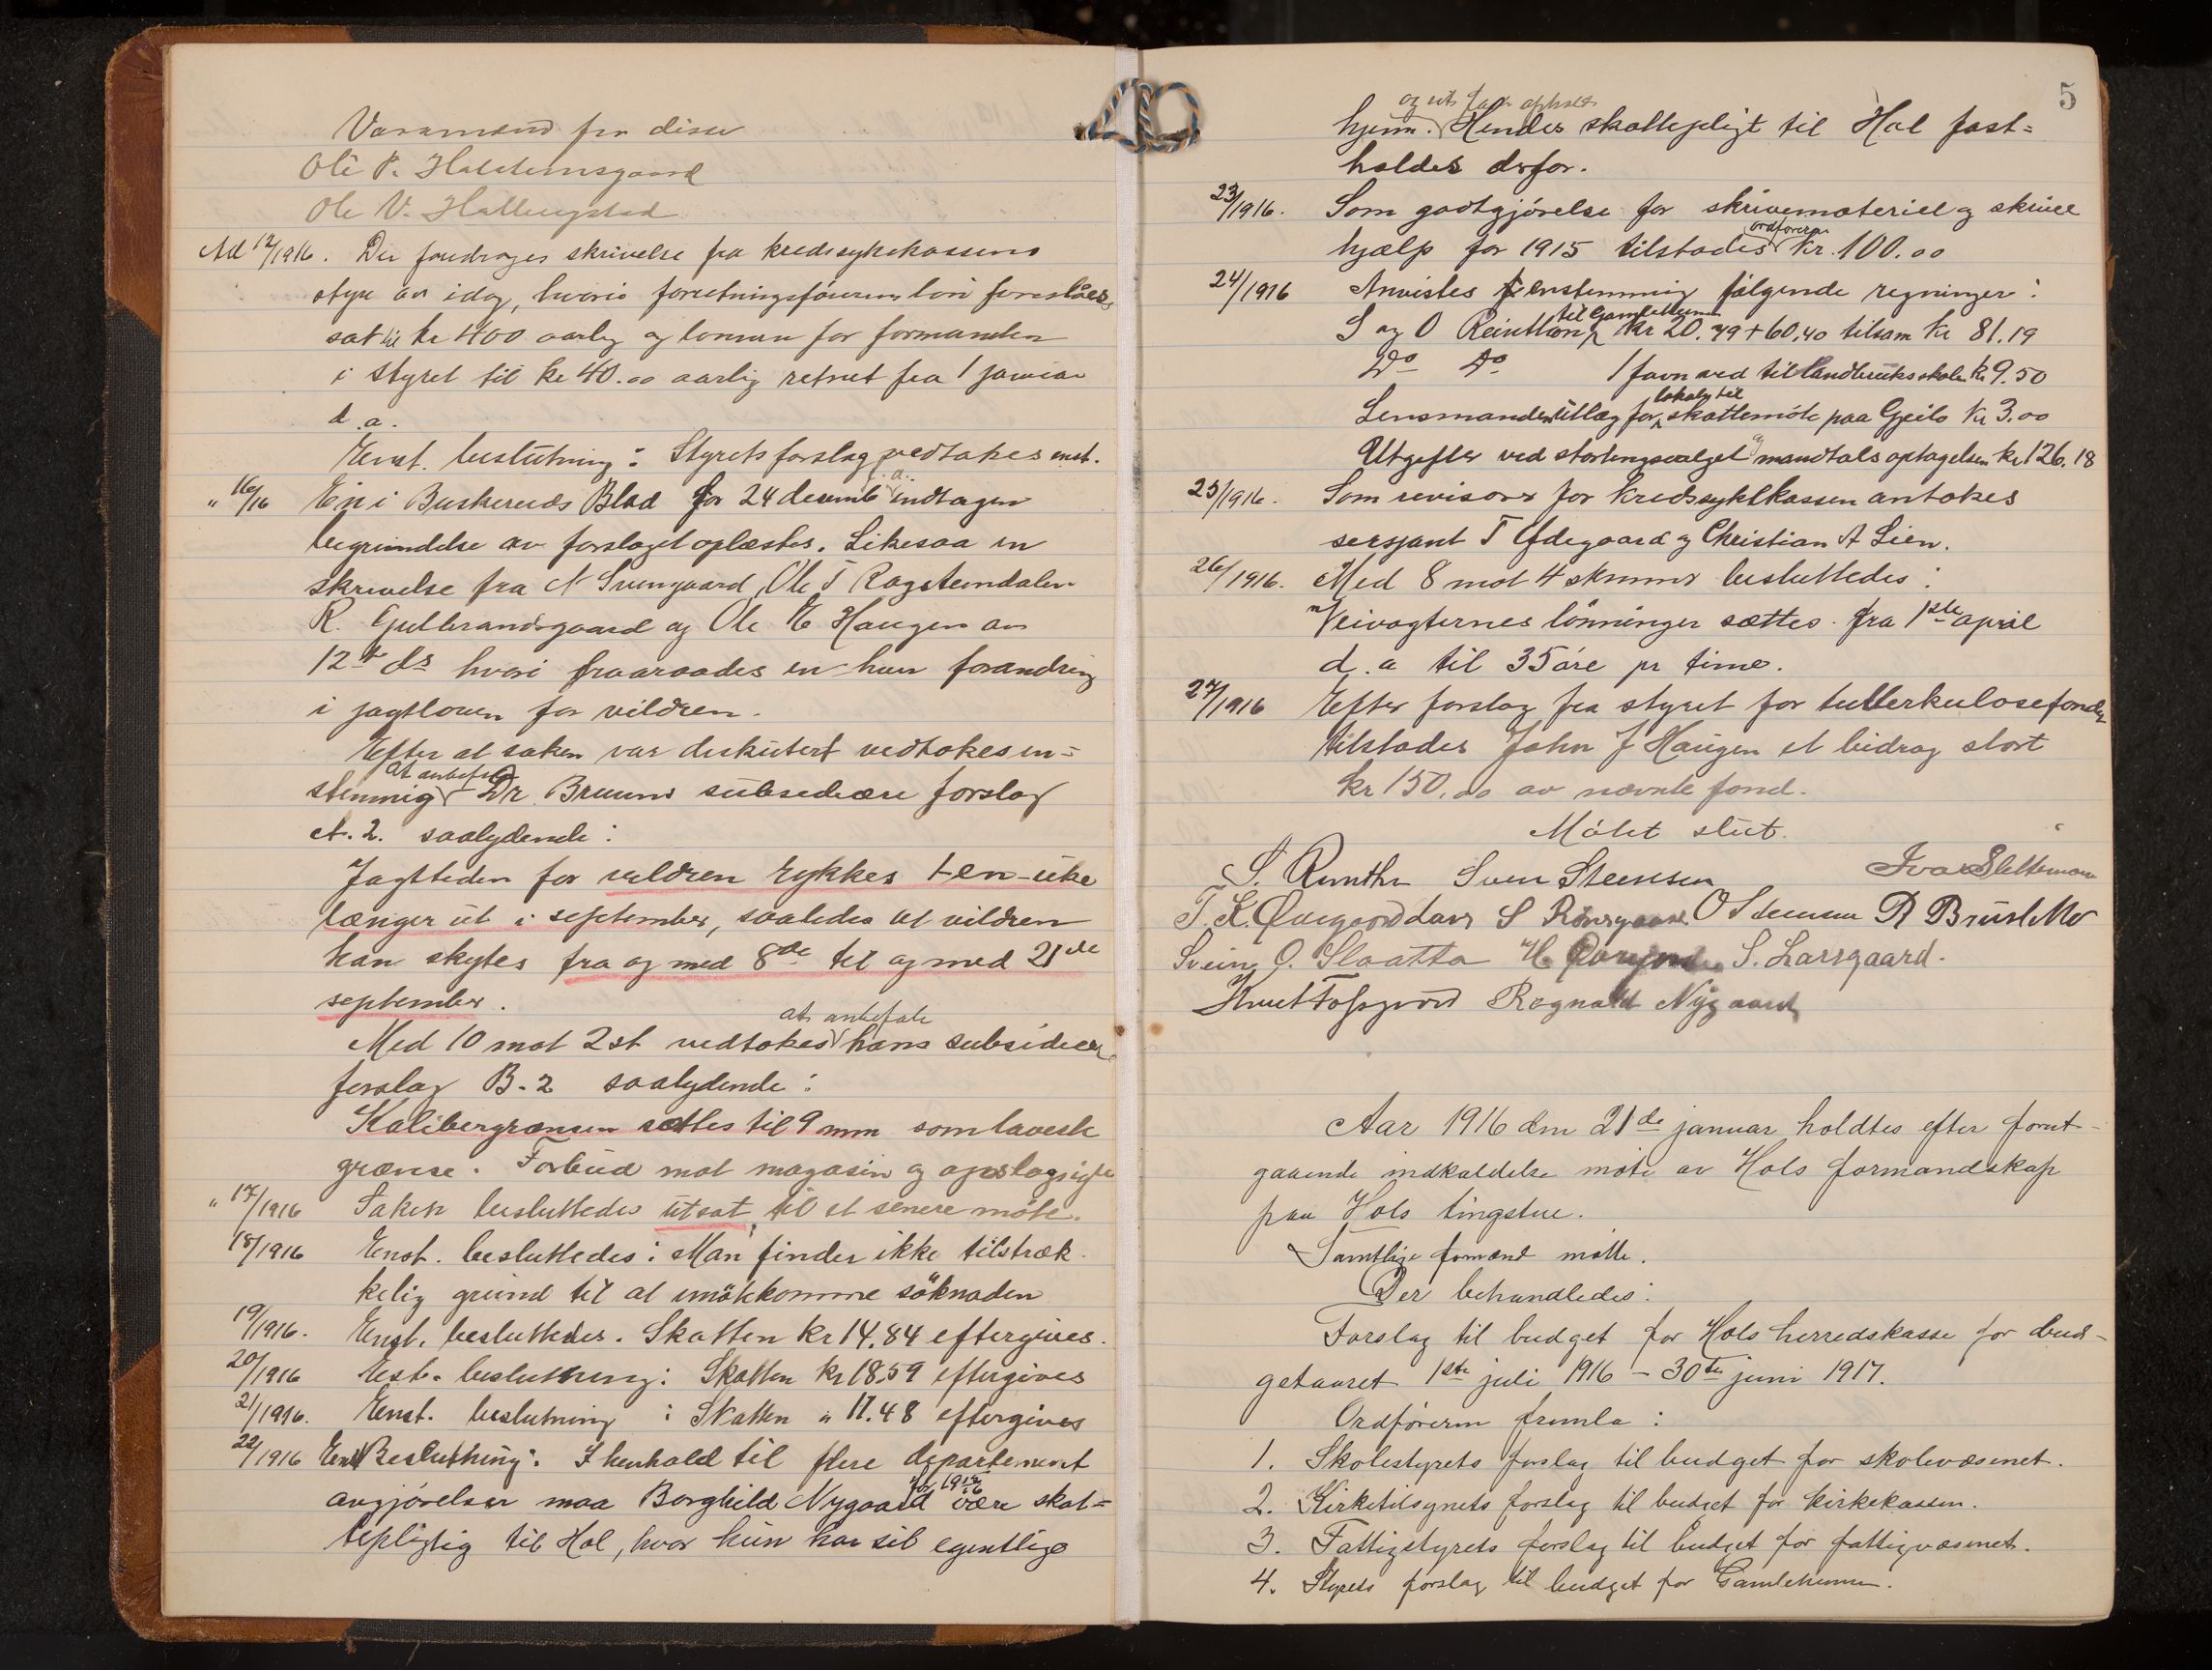 Varamænd for disse
Ole P. Haldemsgaard
Ole V. Hallingstad
Ad 12/1916. Der fordroges skrivelse fra kredssykekassens
styre av idag, hvori forretningsförerens lön foreslåes
sat til kr 400 aarlig og lönnen for formanden
i styret til kr 40.00 aarlig retnet fra 1 januar
d.a.
Enst. beslutning: Styrets forslag vedtakes enst.
" 16/16 En i Buskeruds Blad for 24 desemb f.a. indtagen
begrundelse av forslaget oplæstes. Likesaa en
skrivelse fra N Sveingaard, Ole T Ragsteindalen
R. Gulbrandsgaard og Ole E Haugen av
12te ds hvori fraaraades en hver forandring
i jagtloven for vildren.
Efter at saken var diskutert vedtokes en=
stemmig at anbefale Dr. Bruuns subsidiære forslag
A. 2. saalydende:
Jagttiden for vildren rykkes 1-en-uke
længer ut i september, saaledes at vildren
kan skytes fra og med 8de til og med 21de
september.
Med 10 mot 2 st vedtokes at anbefale hans subsidiære
forslag B. 2 saalydende:
Kalibergrænsen sættes til 9 mm som laveste
grænse. Forbud mot magasin og opslagsigte
" 17/1916 Saken besluttedes utsat til et senere möte.
18/1916 Enst. besluttedes: Man finder ikke tilstræk
kelig grund til at imökomme söknaden
19/1916. Enst. besluttedes. Skatten kr 14.84 eftergives.
20/1916 Enst. beslutning: Skatten kr 18.59 eftergives
21/1916. Enst. beslutning : Skatten " 17.48 eftergives
22/1916 Enst Beslutning: I henhold til flere departement
avgjörelser maa Borghild Nygaard for 1915/16 være skat=
tepligtig til Hol, hvor hun har sit egentlige
5
hjem. og sit faste ophold Hendes skattepligt til Hol fast=
holdes derfor.
23/1916. Som godtgjörelse for skrivemateriel og skrive
hjælp for 1915 tilstodes ordföreren kr. 100.00
24/1916 Anvistes enstemmig fölgende regninger:
S og O Reinton til Gamleheimen kr 20.79 + 60,40 tilsam kr 81.19
Do Do 1 favn ved til landbruksskolen kr 9.50
Lensmandens utlæg for lokale til skattemöte paa Geilo kr 3.00
Utgifter ved stortingsvalget og mandtalsoptagelsen kr 126.18
25/1916. Som revisorer for kredssykekassen antokes
sersjant T Ødegaard og Christian A Lien.
26/1916. Med 8 mot 4 stemmer besluttedes:
"Veivogternes lönninger sættes fra 1ste april
d. a til 35 öre pr time.
27/1916 Efter forslag fra styret for tuberkulosefondet
tilstodes John J Haugen et bidrag stort
kr 150,00 av nævnte fond.
Mötet slut.
S. Reinton Sven Steensen Ivar Slettemoen
T. K. Øvregaard Lars S Rönsgaard O Stenersen R Brusletto
Svein O. Slaatto H. S. Larsgaard.
Knut Fossgard Ragnald Nygaard
Aar 1916 den 21de januar holdtes efter forut-
gaaende indkaldelse möte av Hols formandskap
paa Hols tingstue.
Samtlige formænd mötte.
Der behandledes:
Forslag til budget for Hols herredskasse for bud-
getaaret 1ste juli 1916 - 30te juni 1917.
Ordföreren fremla:
1. Skolestyrets forslag til budget for skolevæsenet.
2. Kirketilsynets forslag til budget for kirkekassen.
3. Fattigstyrets forslag til budget for fattigvæsenet.
4. Styrets forslag til budget for Gamleheimen.